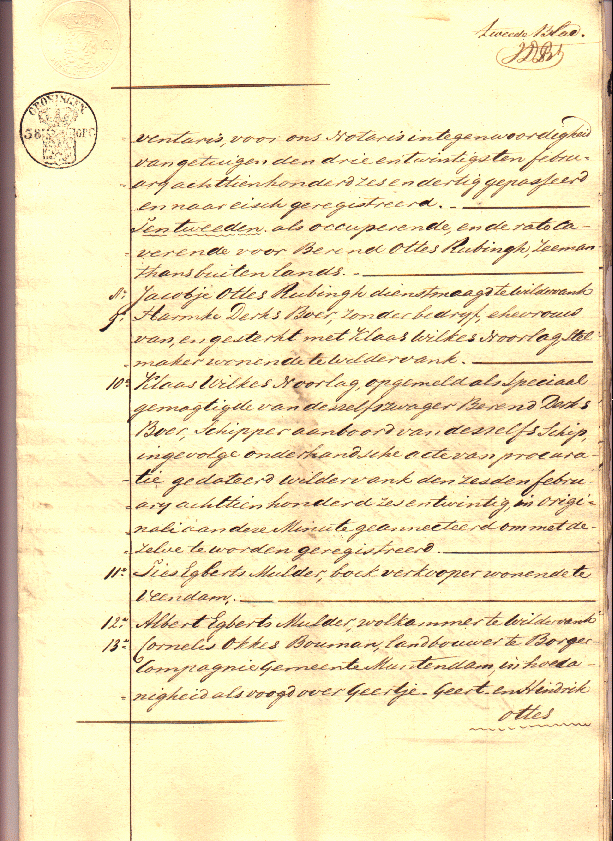 tweede Blad.
GRONINGEN
38
ventaris, voor ons Notaris in tegenwoordigheid
van getuigen den drie en twintigsten febru-
ary achttienhonderd zes en dertig gepasseerd
en naar eisch geregistreerd.
Ten tweeden, als occuperende, en de rato ca-
verende voor Berend Ottes Rubingh, Zeeman
thans buitenlands.
8e Jacobje Ottes Rubingh dienstmaagd te Wildervank
9e Harmke Derks Boer, zonder bedryf, ehevrouw
van, en gesterkt met Klaas Wilkes Noorlag Stel
maker wonende te Wildervank.
10e Klaas Wilkes Noorlag, opgemeld als speciaal
gemagtigde van desselfs zwager Berend Derks
Boer, Schipper aan boord van desselfs Schip,
ingevolge onderhandsche acte van procura-
tie gedateerd Wildervank den zesden febru-
ary achttienhonderd zes en twintig in origi-
nali aan deze Minute geannecteerd om met de-
zelve te worden geregistreerd.
11e Ties Egberts Mulder, boekverkooper wonende te
Veendam,
12e Albert Egberts Mulder, wolkammer te Wildervank
13e Cornelis Okkes Bouman, landbouwer te Borger
Compagnie Gemeente Muntendam, in hoeda-
nigheid als voogd over Geertje - Geert - en Hindrik
Ottes